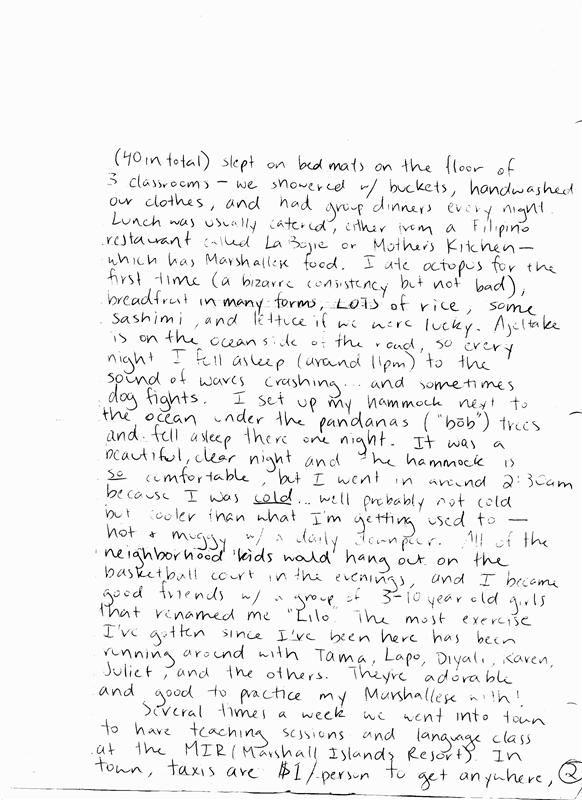 (40 in total) slept on bed mats on the floor of
3 classrooms – we showered w/ buckets, handwashed
our clothes, and had group dinners every night.
Lunch was usually catered, either from a Filipino
restaurant called La Bojie or Mother's Kitchen –
which has Marshallese food. I ate octopus for the
first time (a bizarre consistency but not bad),
breadfruit in many forms, LOTS of rice, some
sashimi, and lettuce if we were lucky. Ajeltake
is on the ocean side of the road, so every
night I fell asleep (around 11pm) to the
sound of waves crashing... and sometimes
dog fights. I set up my hammock next to
the ocean under the pandanas ("bōb") trees
and fell asleep there one night. It was a
beautiful, clear night and the hammock is
so comfortable, but I went in around 2:30am
because I was cold... well probably not cold
but cooler than what I'm getting used to —
hot & muggy w/ a daily downpour. All of the
neighborhood kids would hang out on the
basketball court in the evenings, and I became
good friends w/ a group of 3-10 year old girls
that renamed me "Lilo." The most exercise
I've gotten since I've been here has been
running around with Tama, Lapo, Diyali, Karen,
Juliet, and the others. They're adorable
and good to practice my Marshallese with!
Several times a week we went into town
to have teaching sessions and language class
at the MIR (Marshall Islands Resort). In
town, taxis are $1/person to get anywhere, 2